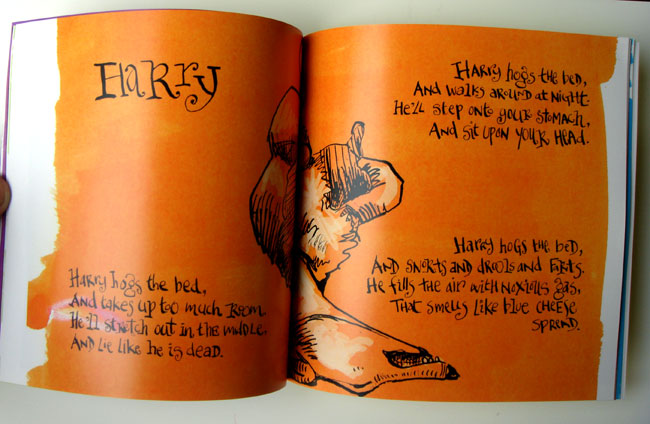 Harry
Harry hogs the bed,
And takes up too much room.
He'll stretch out in the middle,
And lie like he is dead.
Harry hogs the bed,
And walks around at night.
He'll step onto your stomach,
And sit upon your head.
Harry hogs the bed,
And snorts and drools and farts.
He fills the air with noxious gas,
That smells like blue cheese
spread.